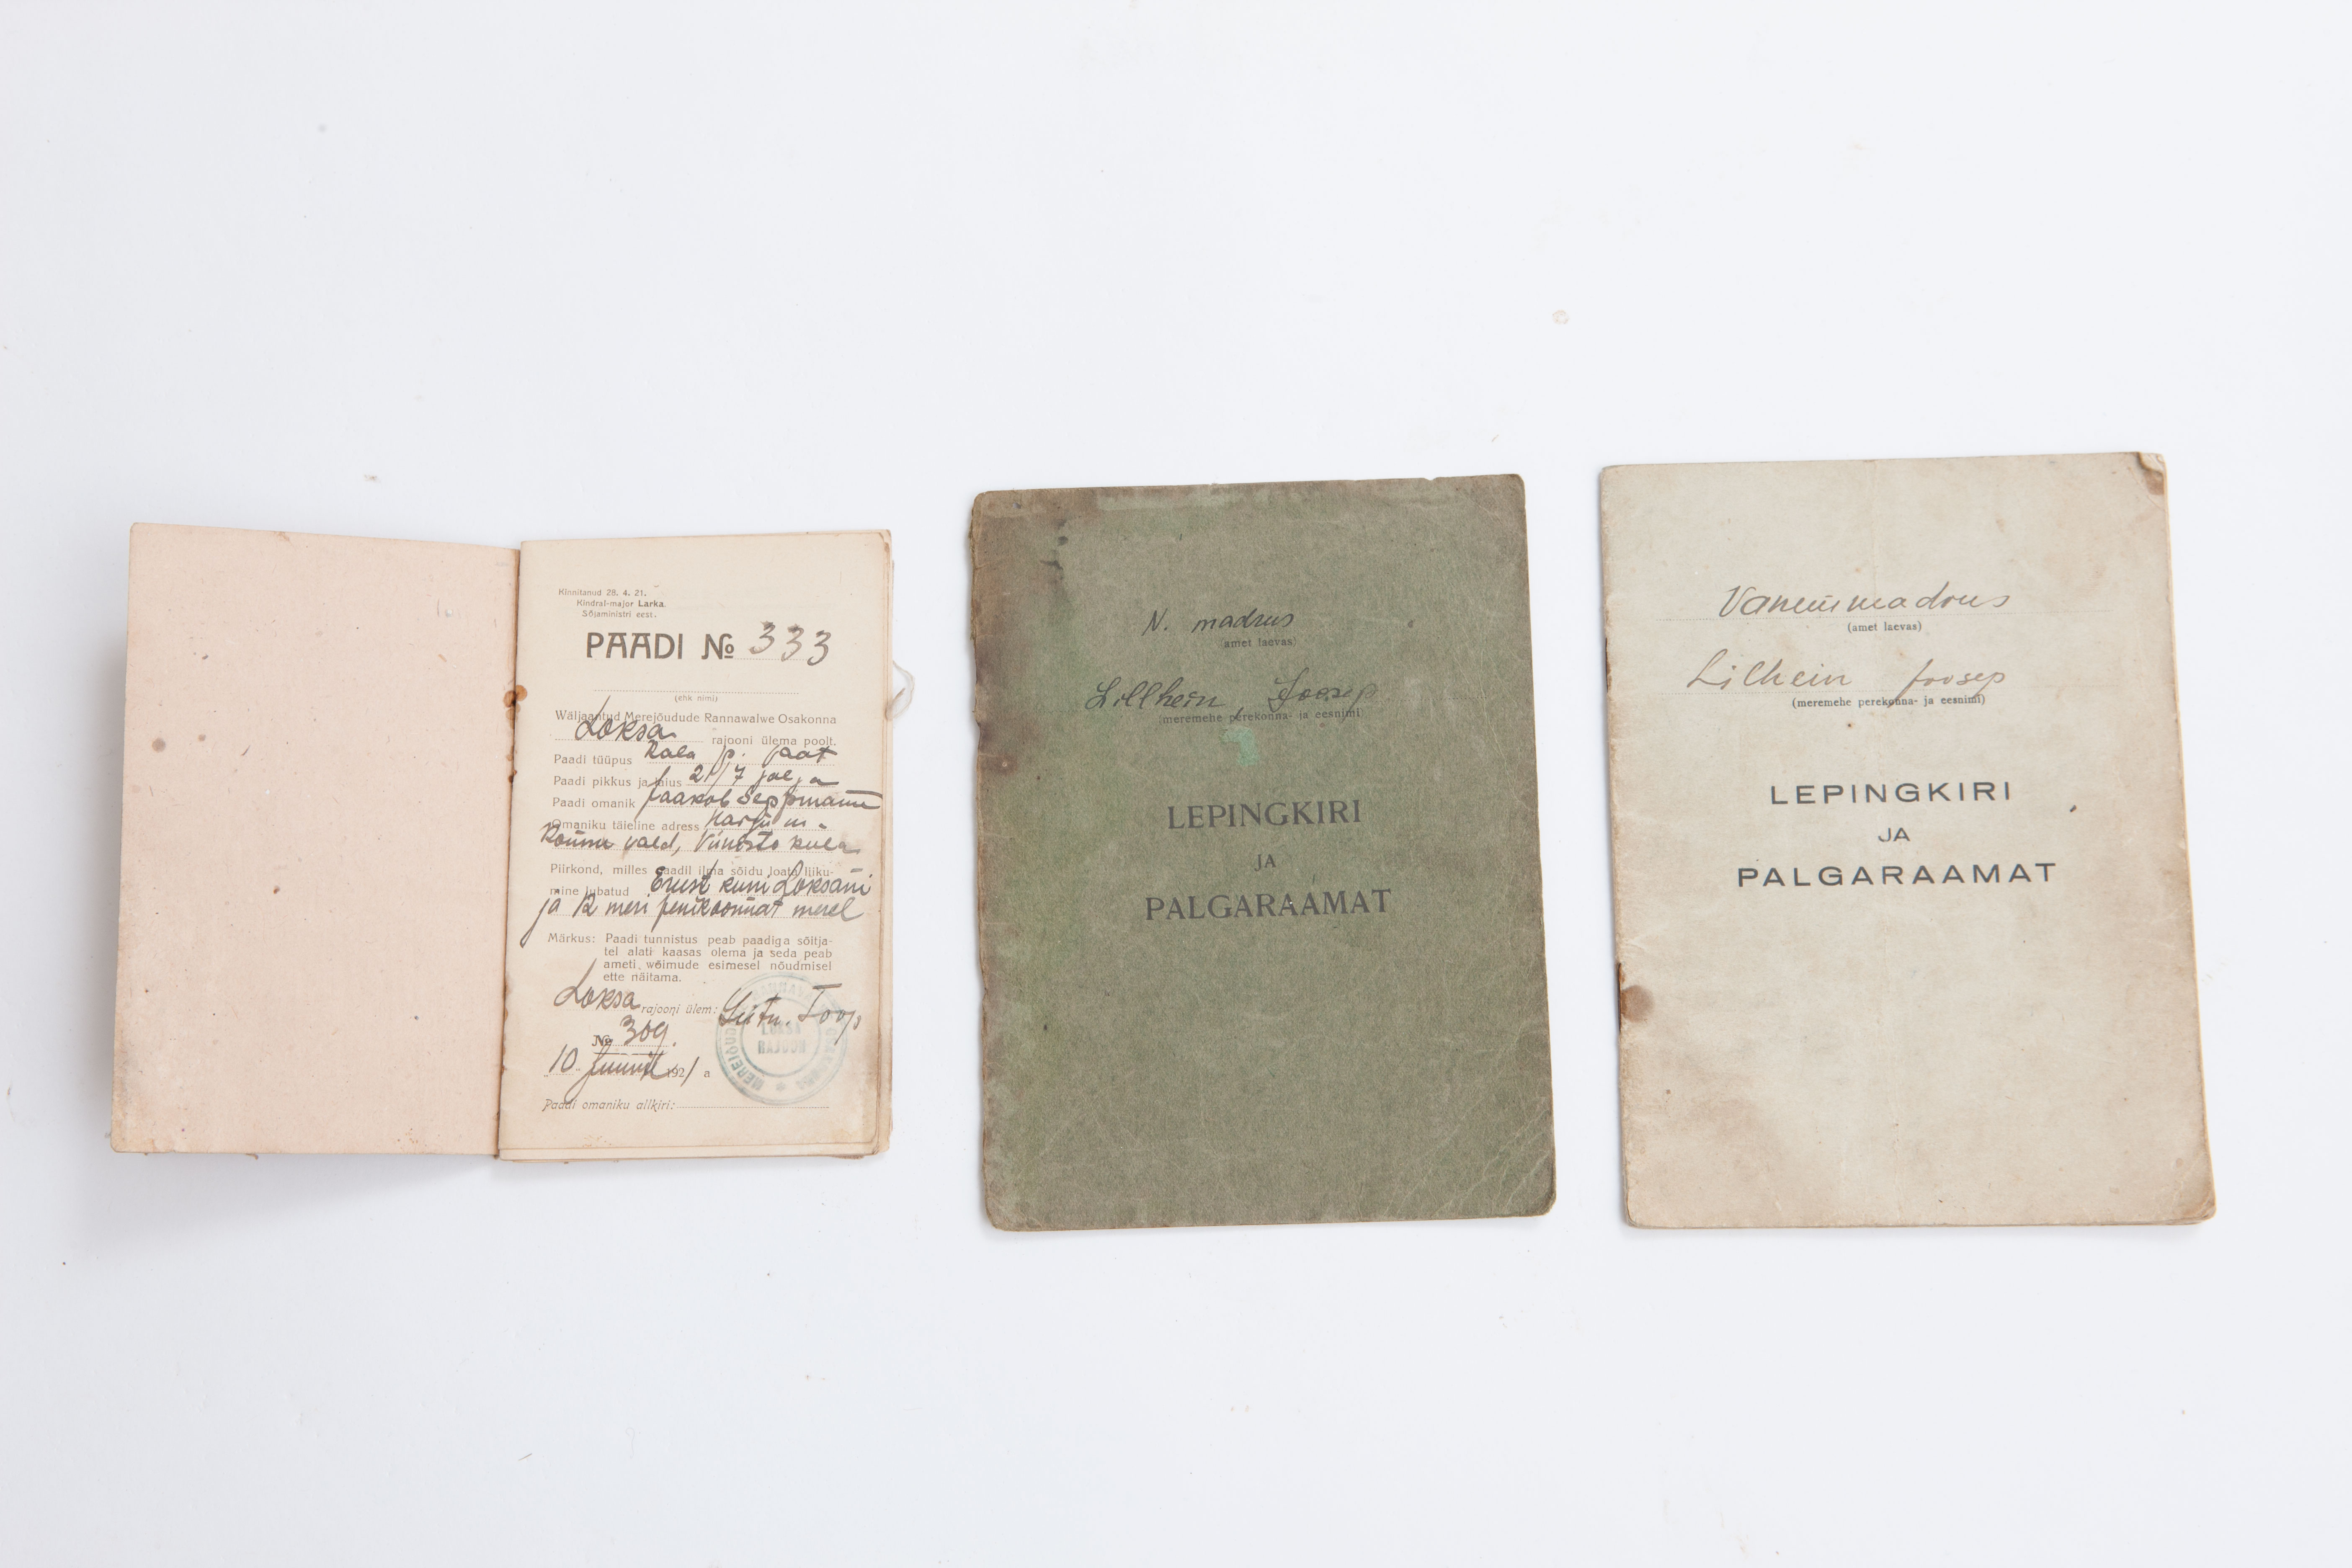 Kinnitanud 28. 4. 21.
Kindral-major Larka.
Sõjaministri eest.
PAADI № 333
(ehk nimi)
Wäljaantud Merejõudude Rannawalwe Osakonna
Loksa rajooni ülema poolt.
Paadi tüüpus Kala p. paat
Paadi pikkus ja laius 21/7 jalga
Paadi omanik Jaakob Seppmann
Omaniku täieline adress Harju m.
Kõnnu vald, Viinisto küla
Piirkond, milles paadil ilma sõidu loata liiku-
mine lubatud Erust kuni Loksani
ja 12 meri penikoormat merel
Märkus: Paadi tunnistus peab paadiga sõitja-
tel alati kaasas olema ja seda peab
ameti wõimude esimesel nõudmisel
ette näitama.
Loksa rajooni ülem:
№ 309.
10 Juunil 1921 a
Paadi omaniku allkiri:
LOKSA
RAJOON
N. madrus
(amet laevas)
Lillhein, Joosep
(meremehe perekonna- ja eesnimi)
LEPINGKIRI
JA
PALGARAAMAT
Vanemmadrus
(amet laevas)
Lilhein Joosep
(meremehe perekonna- ja eesnimi)
LEPINGKIRI
JA
PALGARAAMAT